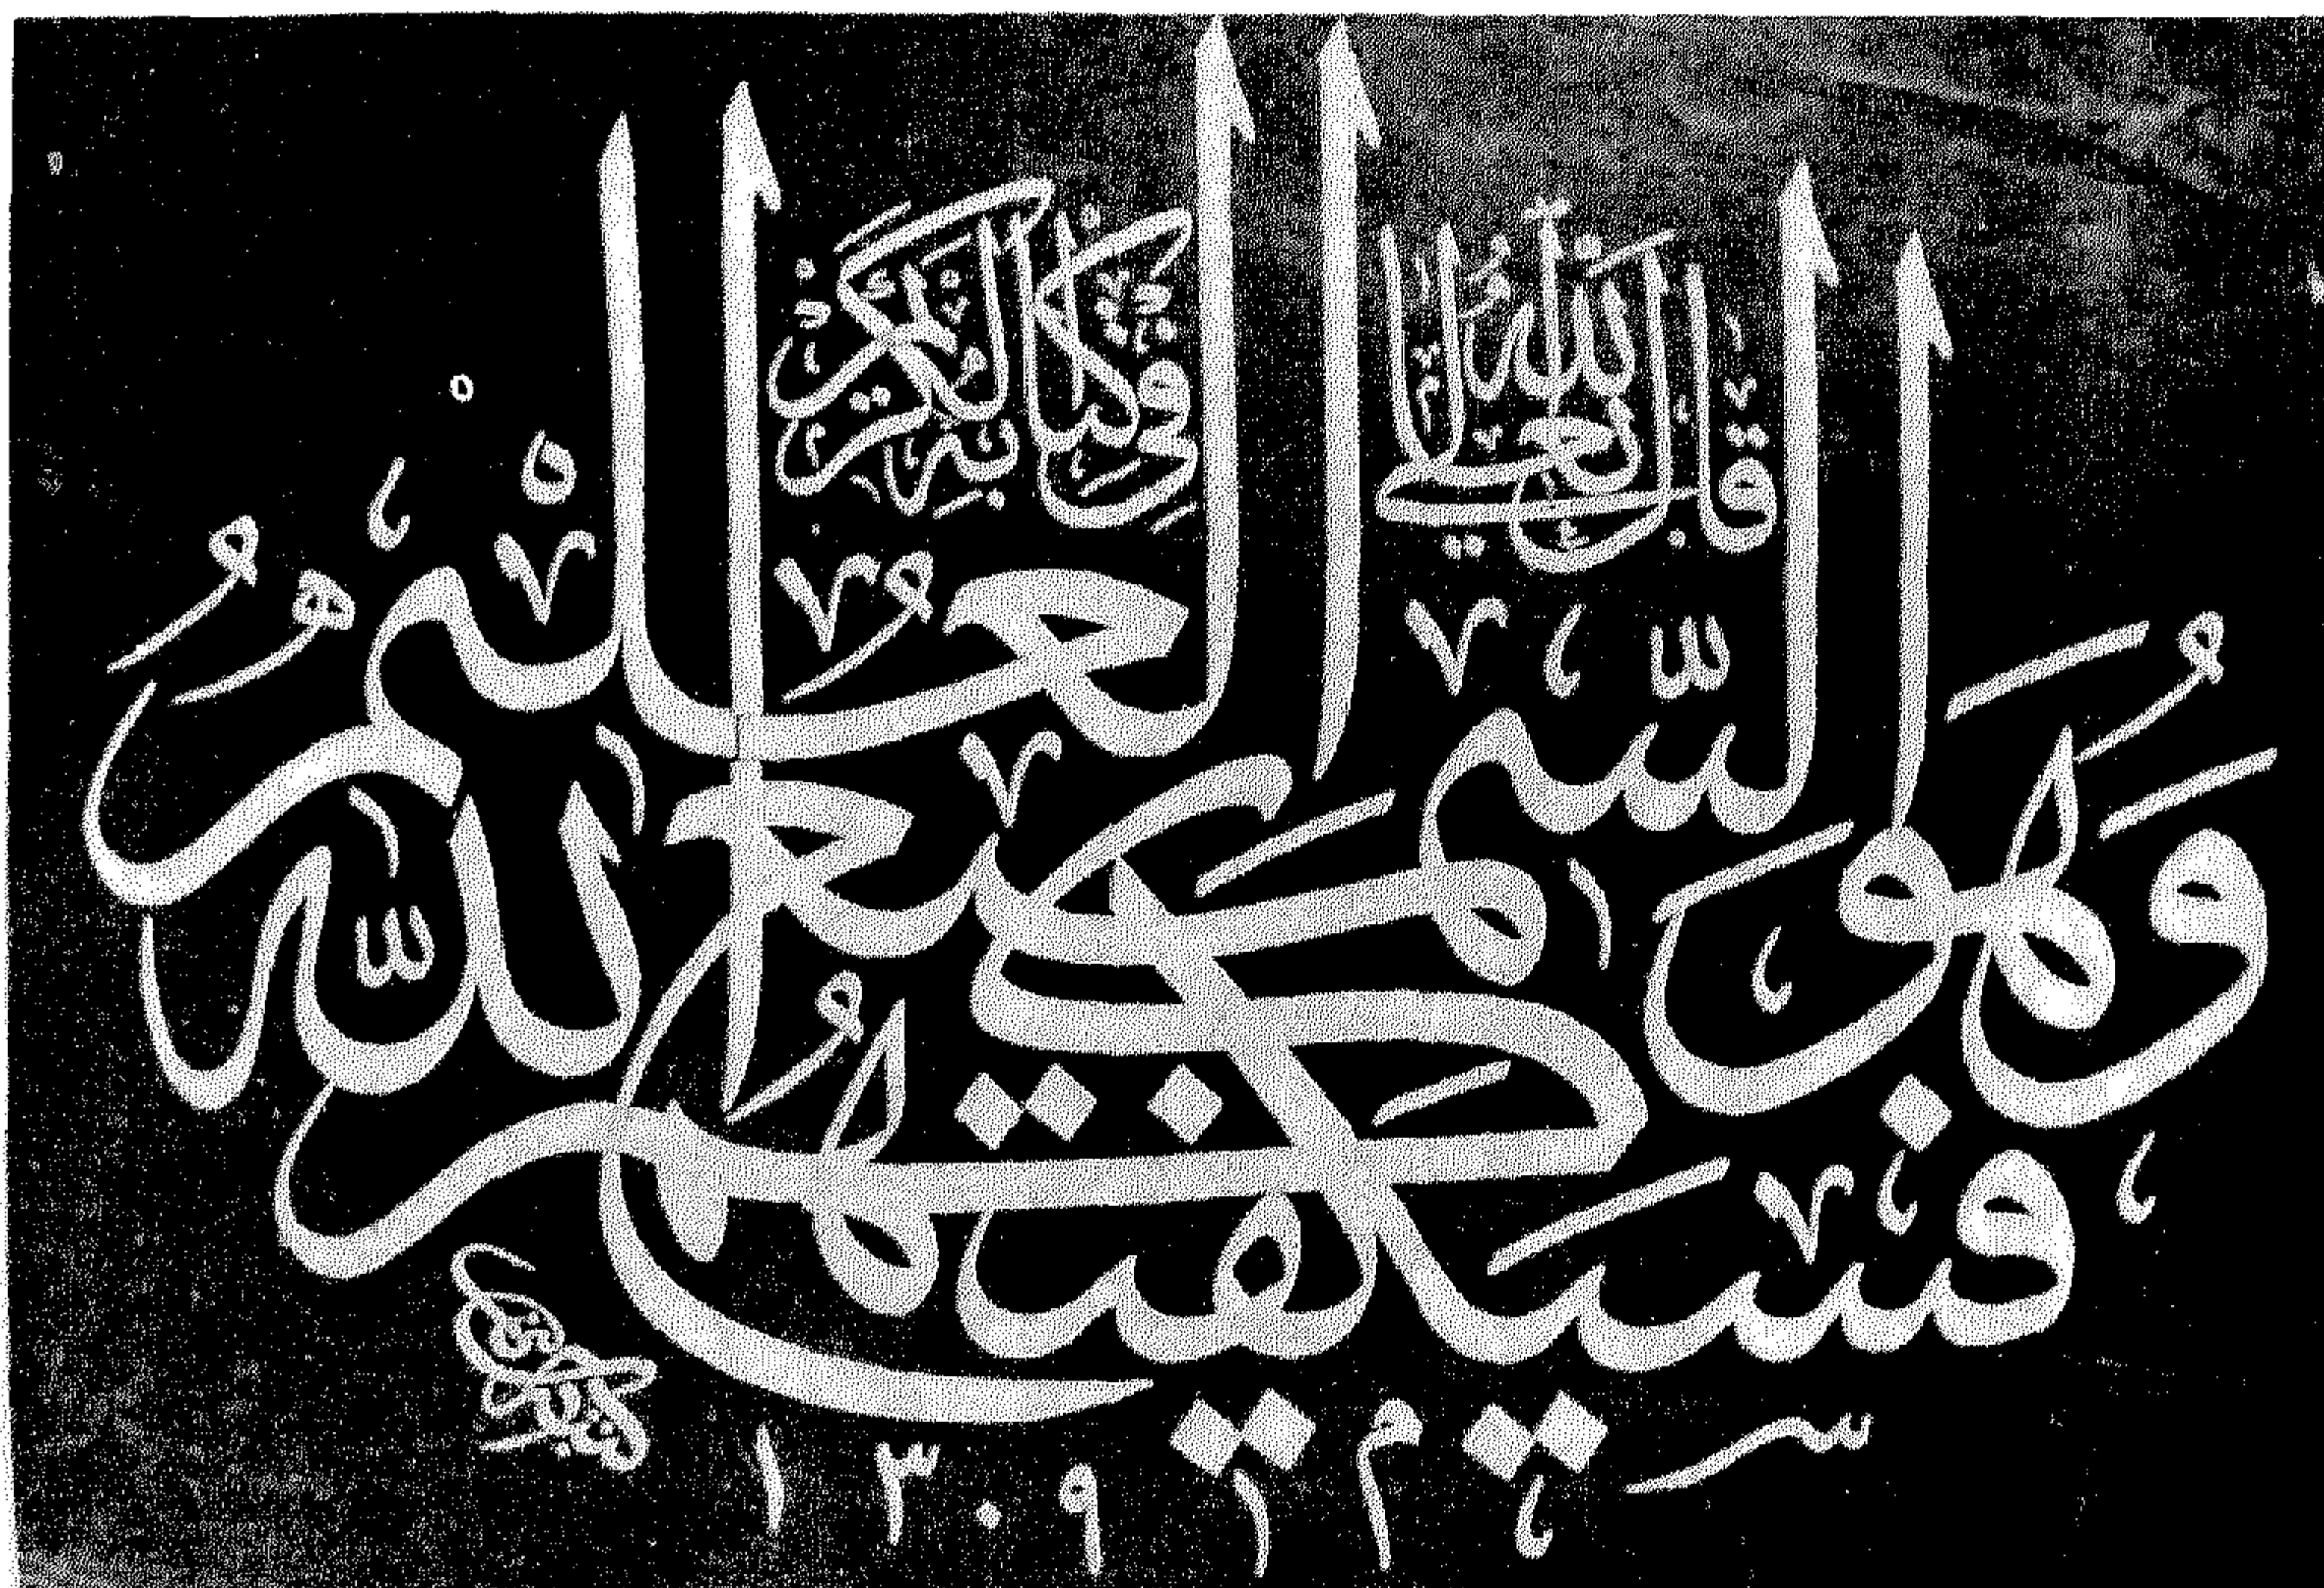 قال الله تعالى
في كتابه الكريم
فَسَيَكْفِيكَهُمُ اللّٰهُ
وَهُوَ السَّمِيعُ الْعَلِيمُ
١٣٠٩